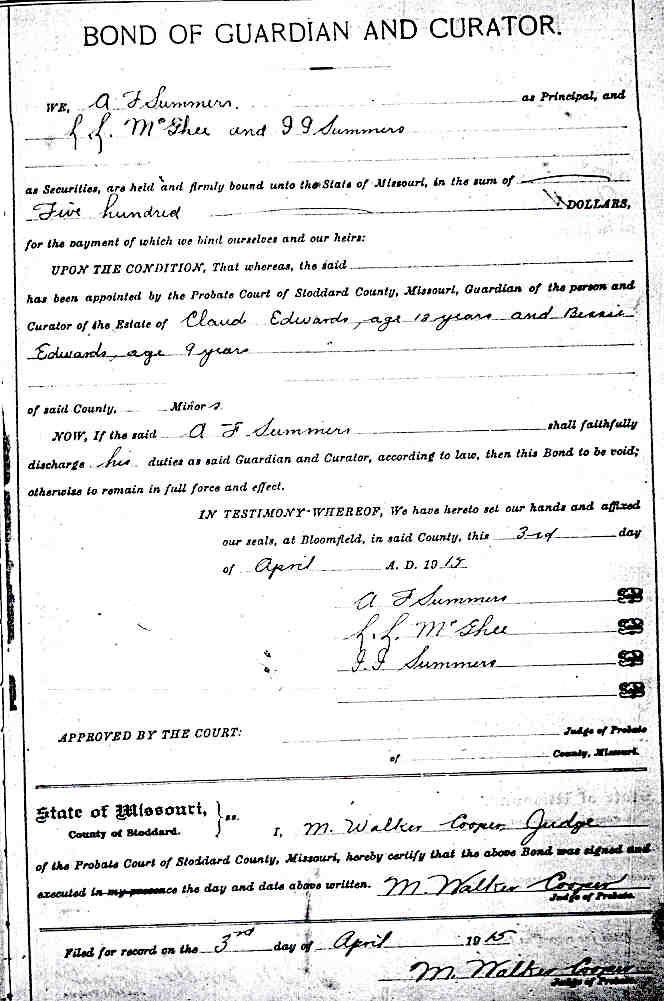 BOND OF GUARDIAN AND CURATOR.
WE, A F Summers. as Principal, and
L. L. McGhee and I I Summers
as Securities, are held and firmly bound unto the State of Missouri, in the sum of
Five hundred DOLLARS,
for the payment of which we bind ourselves and our heirs:
UPON THE CONDITION, That whereas, the said
has been appointed by the Probate Court of Stoddard County, Missouri, Guardian of the person and
Curator of the Estate of Claud Edwards, age years and Bessie
Edwards, age 9 years
of said County, Minor s.
NOW, If the said A F Summers shall faithfully
discharge his duties as said Guardian and Curator, according to law, then this Bond to be void;
otherwise to remain in full force and effect.
IN TESTIMONY WHEREOF, We have hereto set our hands and affixed
our seals, at Bloomfield, in said County, this 3rd day
of April A. D. 1915
A F Summers
L. L. McGhee
Summers
APPROVED BY THE COURT: Judge of Probate
of County, Missouri.
State of Missouri, } ss.
County of Stoddard.
I, M. Walker Cooper, Judge
of the Probate Court of Stoddard County, Missouri, hereby certify that the above Bond was signed and
executed in my presence the day and date above written. M. Walker Cooper
Judge of Probate.
Filed for record on the 3rd day of April 1915
M. Walker Cooper
Judge of Probate.